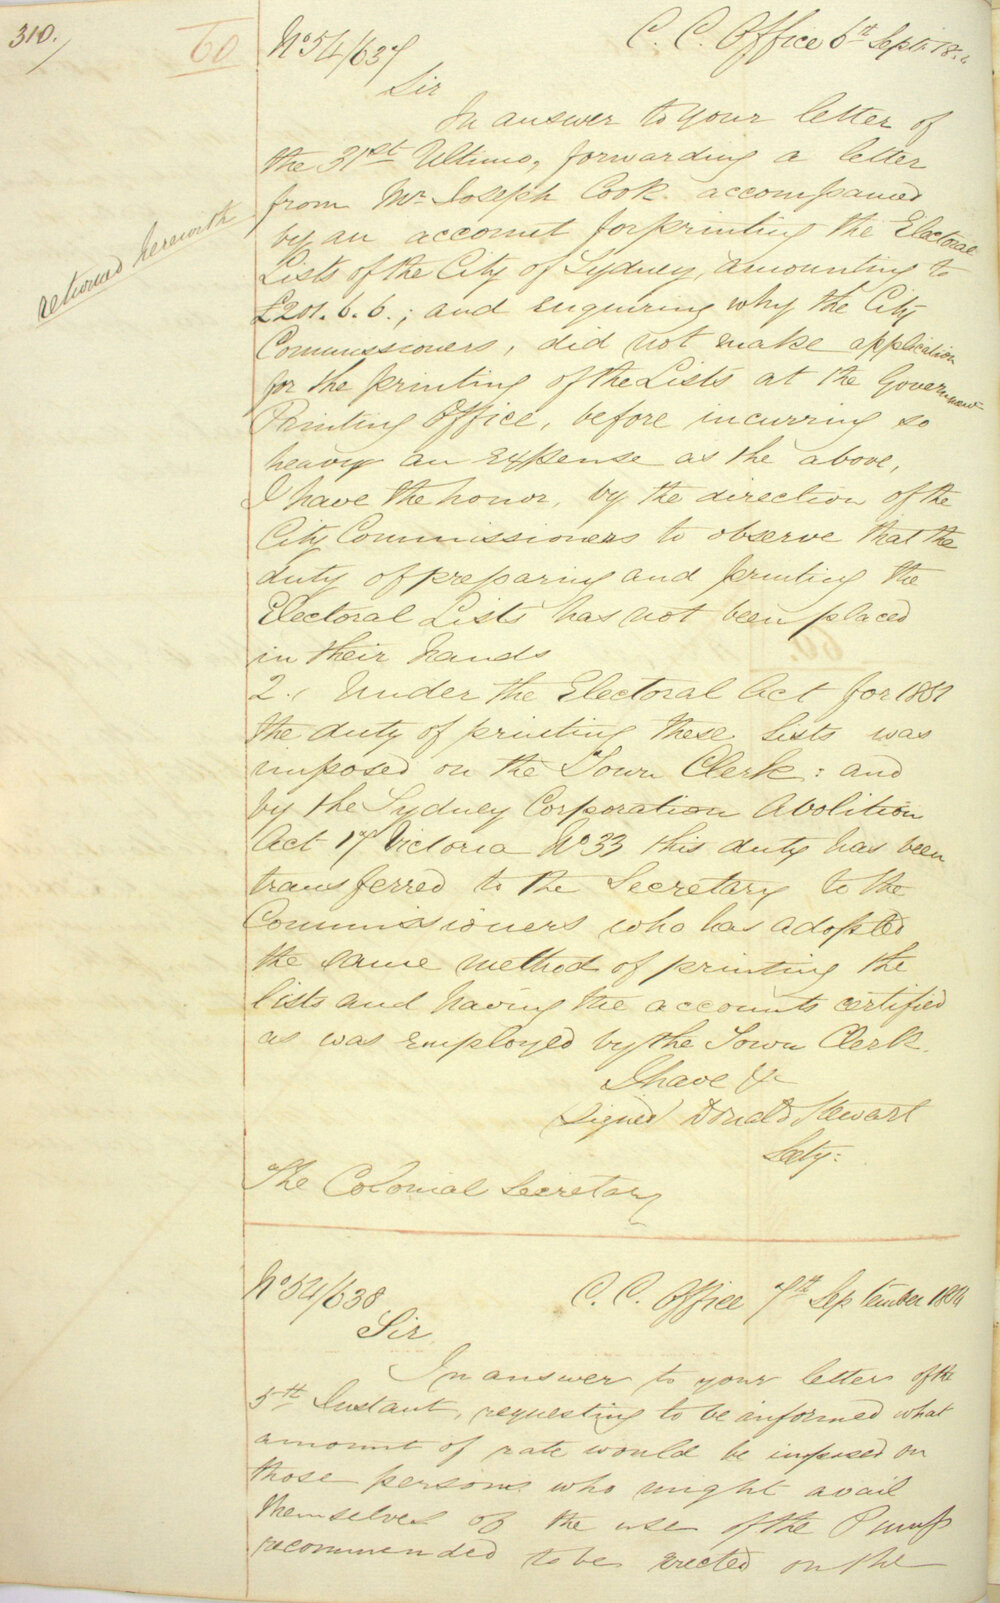 310.
60
No 54/637
C. C. Office 6th Sept. 18
Sir
In answer to your letter of
the 31st Ultimo, forwarding a letter
from Mr Joseph Cook accompanied
by an account for printing the Electoral
Lists of the City of Sydney, amounting to
returned herewith
£201.6.6.; and enquiring why the City
Commissioners, did not make application
for the printing of the Lists at the Government
Printing Office, before incurring so
heavy an expense as the above,
I have the honor, by the direction of the
City Commissioners to observe that the
duty of preparing and printing the
Electoral Lists has not been placed
in their hands
2./ Under the Electoral Act for 1851
the duty of printing these lists was
imposed on the Town Clerk: and
by the Sydney Corporation Abolition
Act 17 Victoria No 33 this duty has been
transferred to the Secretary to the
Commissioners who has adopted
the same method of printing the
lists and having the accounts certified
as was employed by the Town Clerk.
I have &c
Signed Donald Stewart
Secty:
The Colonial Secretary
No 54/638
C. C. Office 7th September 1854
Sir
In answer to your letter of the
5th Instant, requesting to be informed what
amount of rate would be imposed on
those persons who might avail
themselves of the use of the Pump
recommended to be erected on the